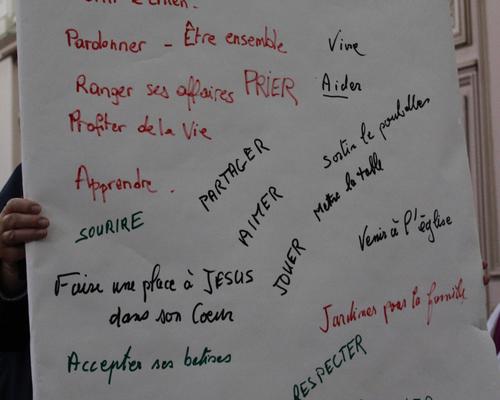 Pardonner - Être ensemble
Vivre
Ranger ses affaires PRIER
Aider
Profiter de la Vie
Sortir le poubelles
PARTAGER
Mettre la table
Apprendre.
AIMER
SOURIRE
JOUER
Venir à l'église
Faire une place à JESUS
dans son Coeur
Jardiner pour la famille
Accepter ses betises
RESPECTER